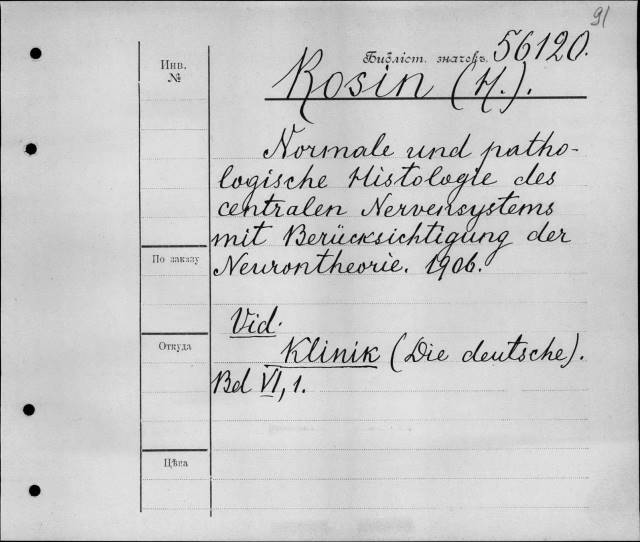 91
Библіот. значокъ. 56120.
Инв.
№
Rosin (H.).
Normale und patho-
logische Histologie des
centralen Nervensystems
mit Berücksichtigung der
По заказу
Neurontheorie. 1906.
Vid.
Откуда
Klinik (Die deutsche).
Bd VI, 1.
Цѣна